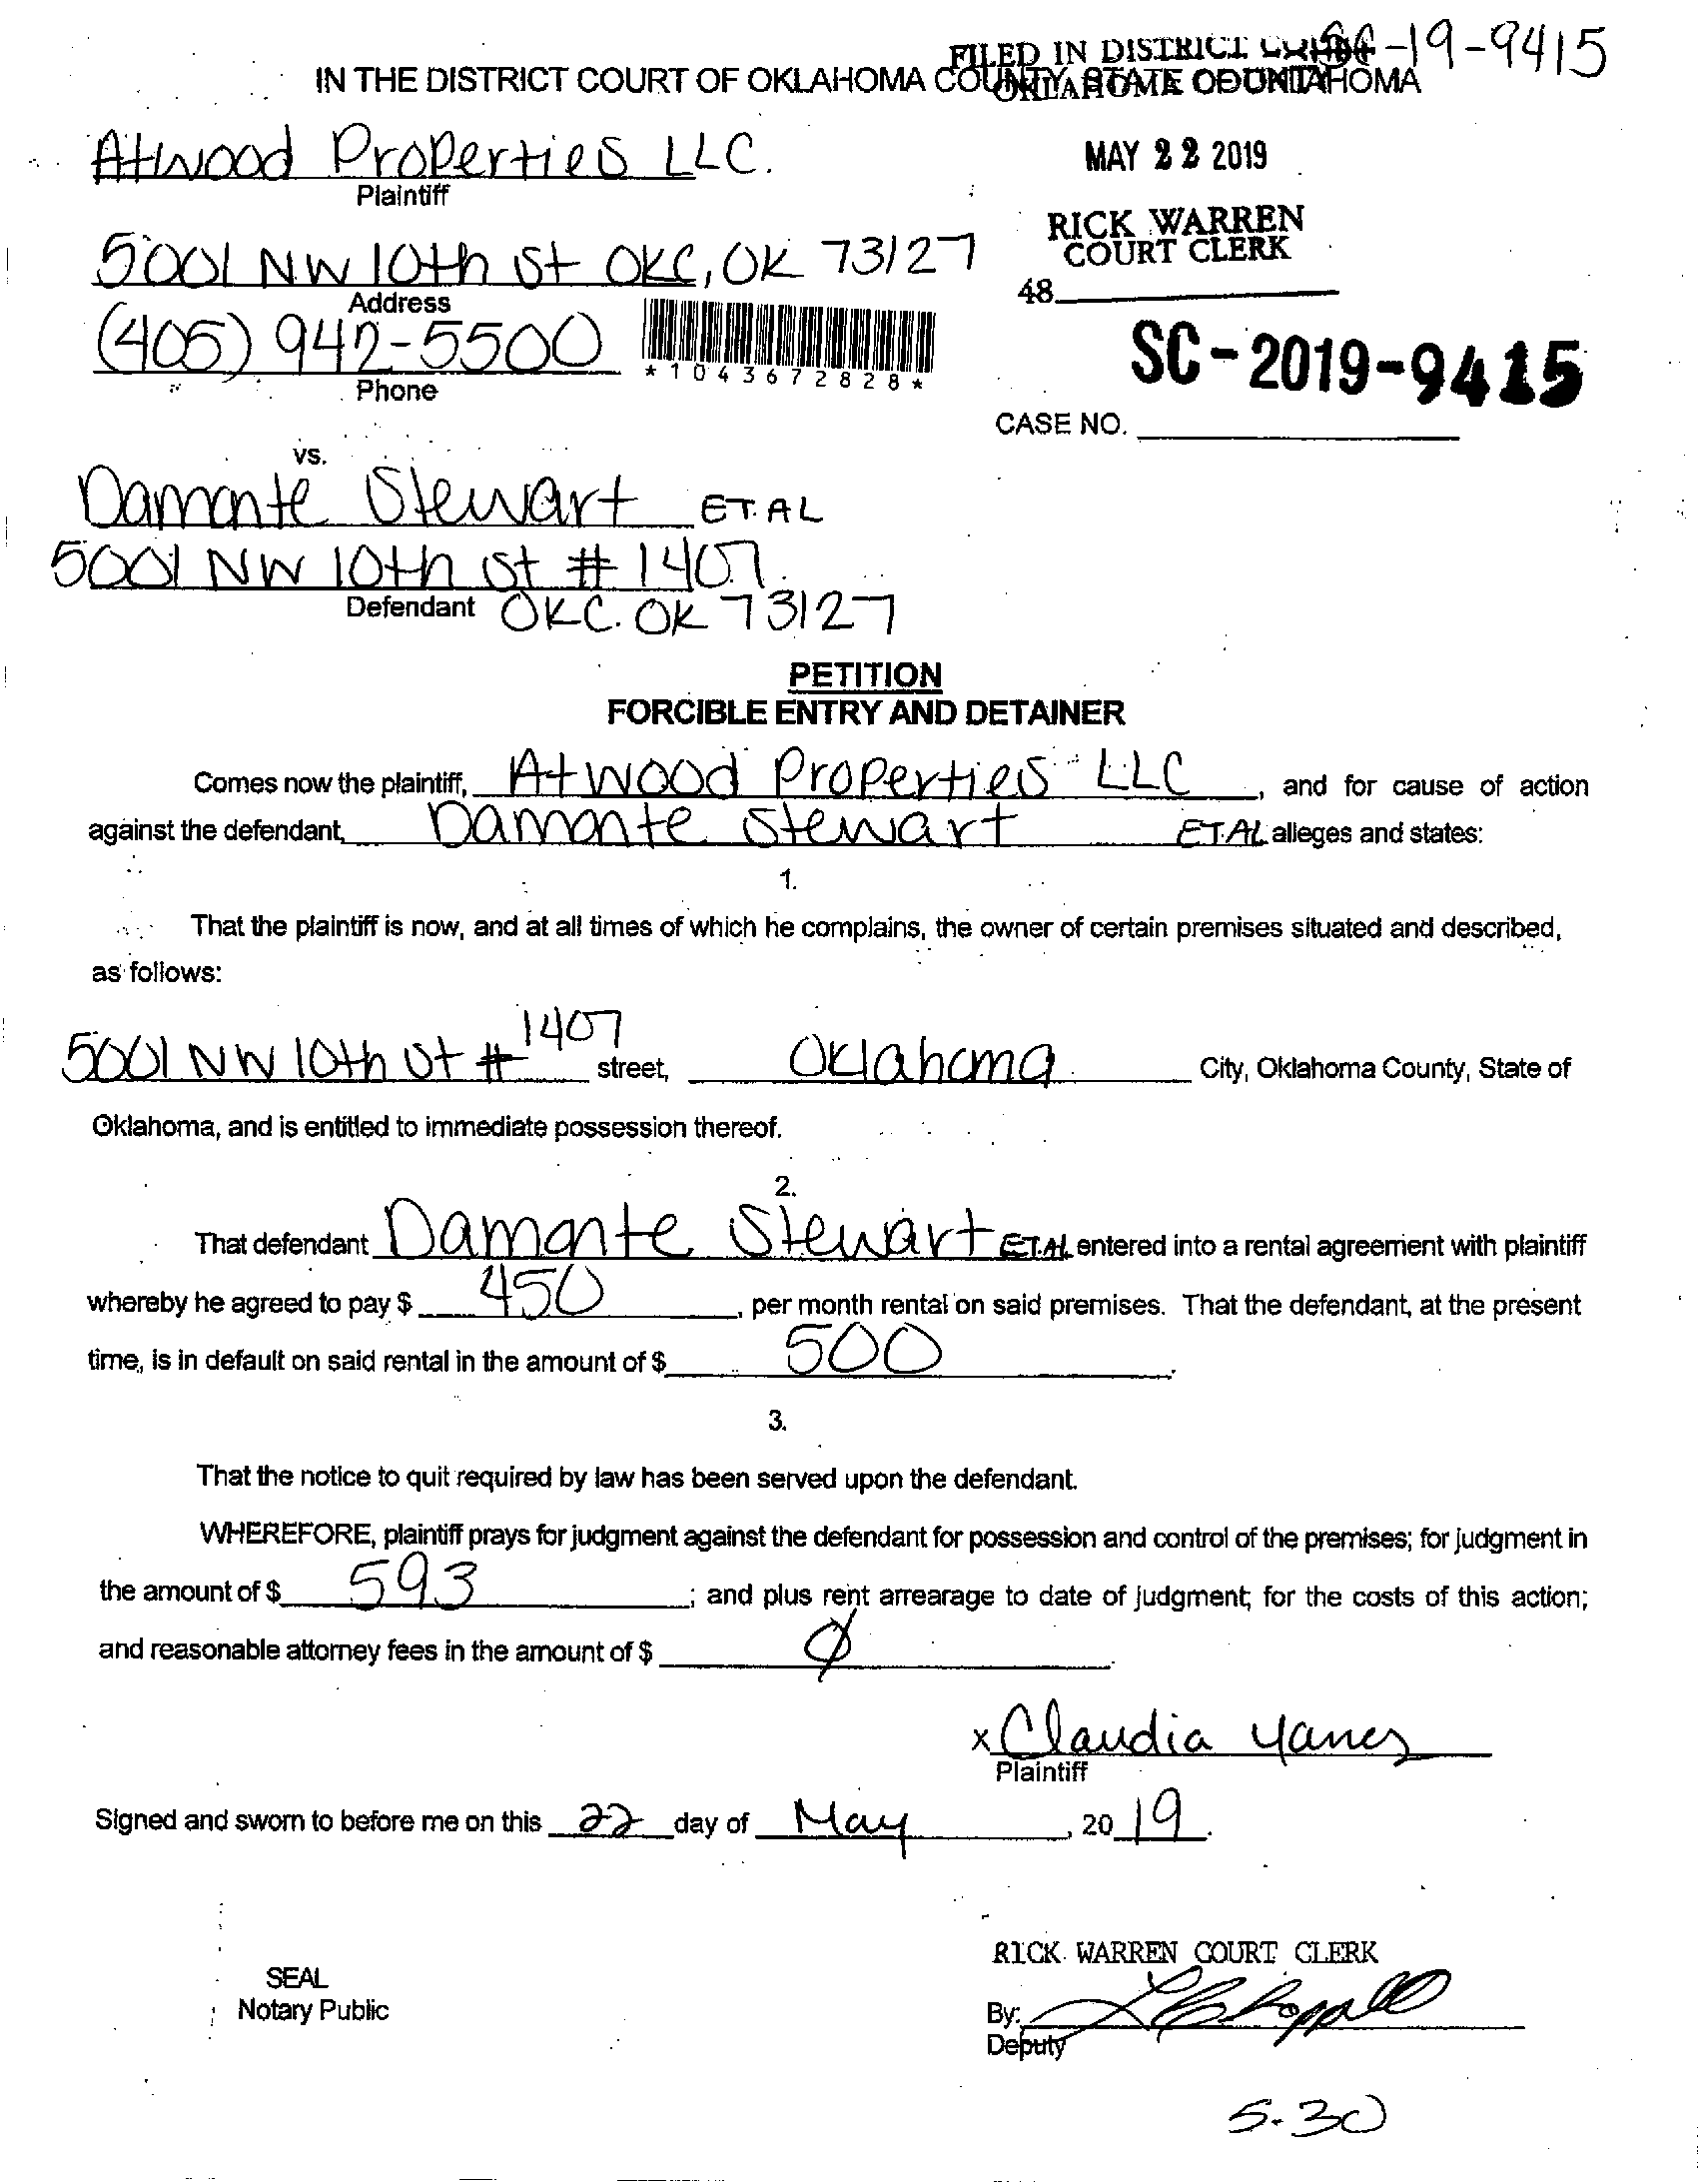 SC-19-9415
FILED IN DISTRICT COURT
IN THE DISTRICT COURT OF OKLAHOMA COUNTY, STATE OF OKLAHOMA
OKLAHOMA COUNTY
Atwood Properties LLC.
Plaintiff
MAY 22 2019
RICK WARREN
COURT CLERK
48
5001 NW 10th St OKC, OK 73127
Address
(405) 942-5500
Phone
*1043672828*
SC-2019-9415
CASE NO.
vs.
Damonte Stewart ET. AL
5001 NW 10th St # 1407.
Defendant OKC. OK 73127
PETITION
FORCIBLE ENTRY AND DETAINER
Comes now the plaintiff, Atwood Properties LLC, and for cause of action
against the defendant, Damonte Stewart ET.AL alleges and states:
1.
That the plaintiff is now, and at all times of which he complains, the owner of certain premises situated and described,
as follows:
5001 NW 10th St # 1407 street, Oklahoma City, Oklahoma County, State of
Oklahoma, and is entitled to immediate possession thereof.
2.
That defendant Damonte Stewart ET.AL entered into a rental agreement with plaintiff
whereby he agreed to pay $ 450, per month rental on said premises. That the defendant, at the present
time, is in default on said rental in the amount of $ 500.
3.
That the notice to quit required by law has been served upon the defendant.
WHEREFORE, plaintiff prays for judgment against the defendant for possession and control of the premises; for judgment in
the amount of $ 593; and plus rent arrearage to date of judgment; for the costs of this action;
and reasonable attorney fees in the amount of $ Ø.
x Claudia Yanes
Plaintiff
Signed and sworn to before me on this 22 day of May, 2019.
RICK WARREN COURT CLERK
SEAL
Notary Public
By:
Deputy
5-30